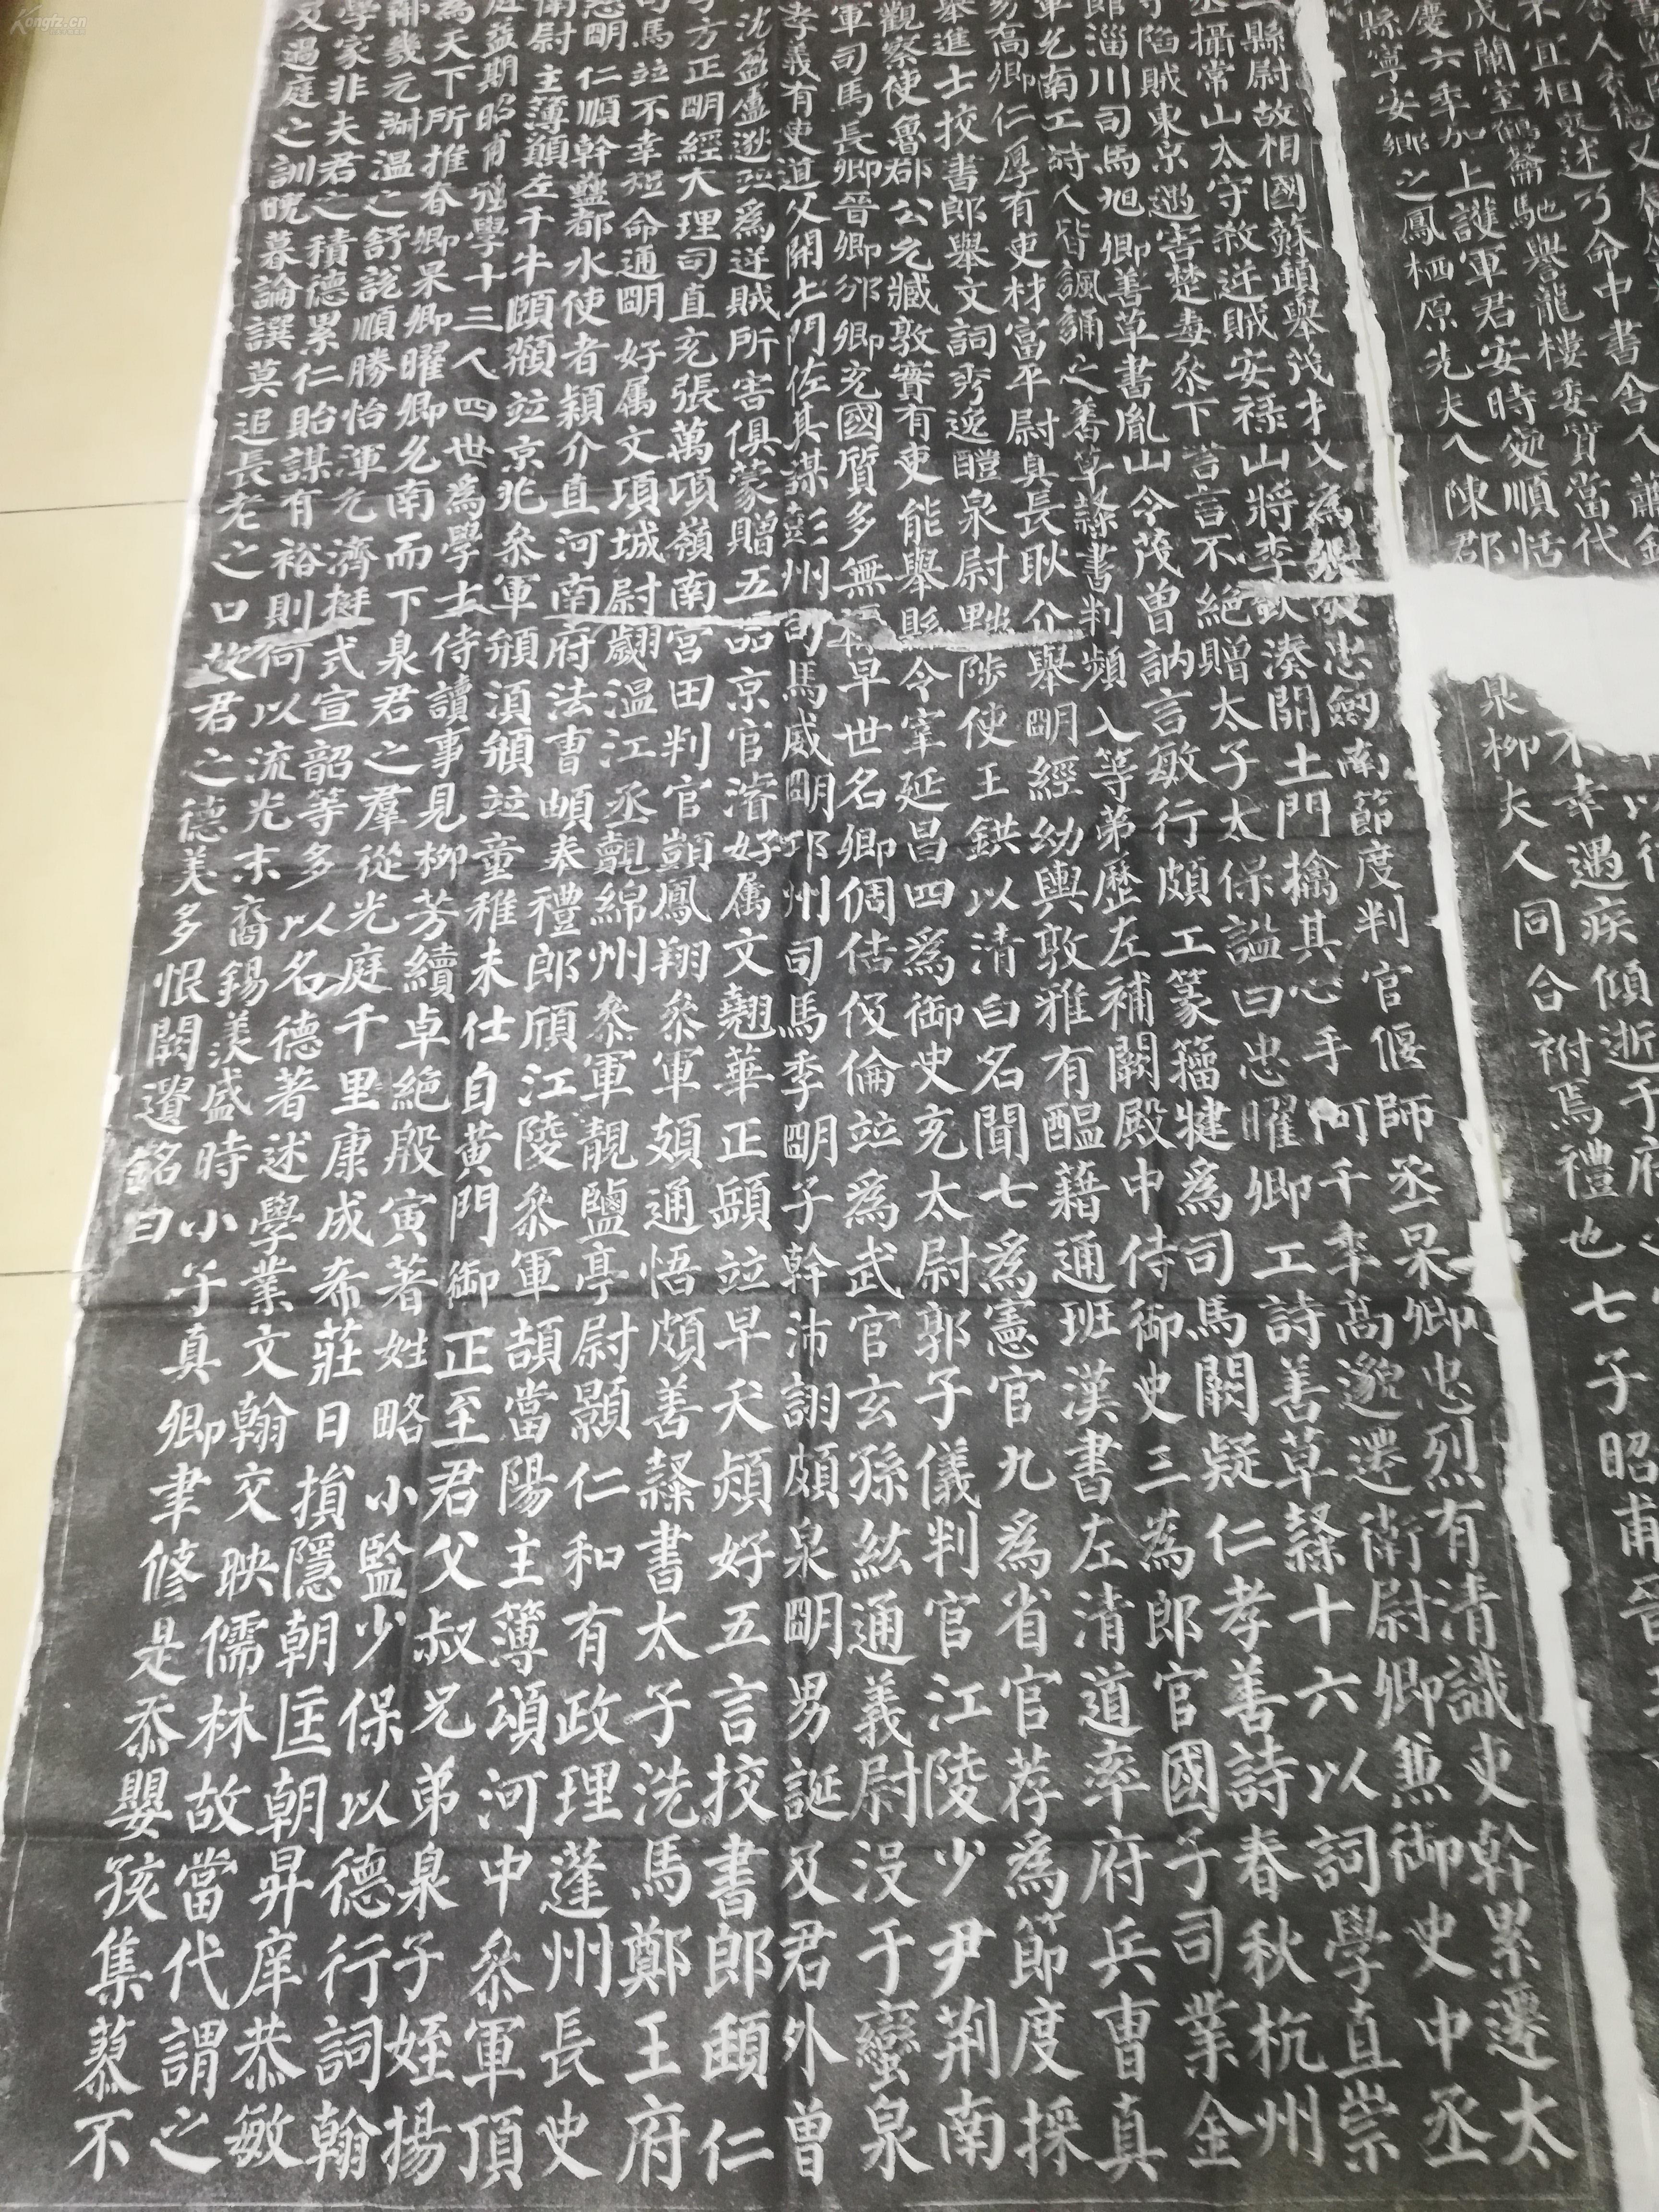 宜相褒述乃命中書舍人蕭鈞
成蘭室鶴籥馳譽龍樓委質當代
慶六年加上護軍君安時處順恬
縣寧安鄉之鳳栖原先夫人陳郡
不幸遇疾傾逝于府
泉柳夫人同合祔焉禮也七子昭甫晉王
縣尉故相國蘇頲舉茂才又為忠劒南節度判官偃師丞杲卿忠烈有清識吏幹累遷太
攝常山太守殺逆賊安祿山將李欽湊開土門擒其心手何千年高邈遷衛尉卿兼御史中丞
陷賊東京遇害楚毒參下詈言不絕贈太子太保謚曰忠曜卿工詩善草隸十六以詞學直崇
館淄川司馬旭卿善草書胤山令茂曾訥言敏行頗工篆籀犍為司馬闕疑仁孝善詩春秋杭州
軍允南工詩人皆諷誦之善草隸書判頻入等第歷左補闕殿中侍御史三為郎官國子司業金
高卿仁厚有吏材富平尉真長耿介舉明經幼輿敦雅有醞藉通班漢書左清道率府兵曹真
舉進士挍書郎舉文詞秀逸醴泉尉黜陟使王鉷以清白名聞七為憲官九為省官荐為節度採
觀察使魯郡公允臧敦實有吏能舉縣令宰延昌四為御史充太尉郭子儀判官江陵少尹荊南
軍司馬長卿晉卿邠卿充國質多無祿早世名卿倜佶伋倫並為武官玄孫紘通義尉沒于蠻泉
孝義有吏道父開土門佐其謀彭州司馬威明邛州司馬季明子幹沛詡頗泉明男誕及君外曾
沈盈盧逖並為逆賊所害俱蒙贈五品京官濬好屬文翹華正頤並早夭熲好五言挍書郎頲仁
方正明經大理司直充張萬頃嶺南營田判官顗鳳翔參軍頍通悟頗善隸書太子洗馬鄭王府
司馬並不幸短命通明好屬文項城尉翽溫江丞覿綿州參軍靚鹽亭尉顥仁和有政理蓬州長史
慈明仁順幹蠱都水使者穎介直河南府法曹頔奉禮郎頎江陵參軍頡當陽主簿頌河中參軍頂
衛尉主簿願左千牛頤頵並京兆參軍頯須頩並童稚未仕自黃門御正至君父叔兄弟泉子姪揚
庭益期昭甫強學十三人四世為學士侍讀事見柳芳續卓絕殷寅著姓略小監少保以德行詞翰
為天下所推春卿杲卿曜卿允南而下泉君之羣從光庭千里康成希莊日損隱朝匡朝昇庠恭敏
鄰幾元淑溫之舒說順勝怡渾允濟挺式宣韶等多以名德著述學業文翰交映儒林故當代謂之
學家非夫君之積德累仁貽謀有裕則何以流光末裔錫羨盛時小子真卿聿修是忝嬰孩集蓼不
及過庭之訓晚暮論譔莫追長老之口故君之德美多恨闕遺銘曰